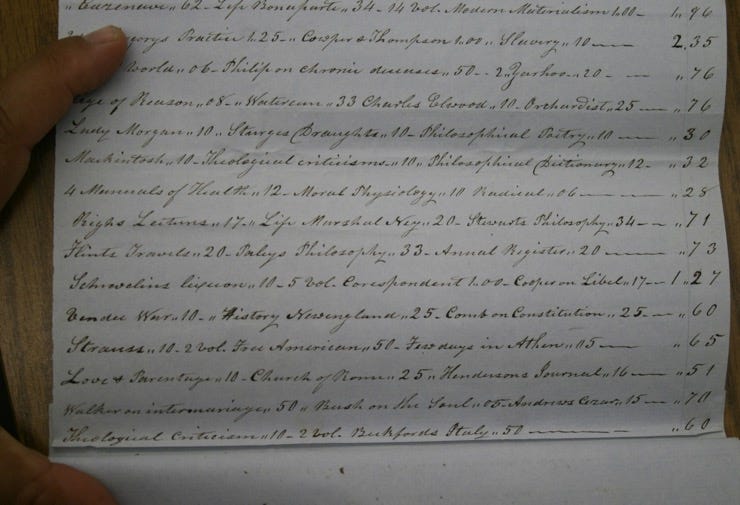 " Cazenave " 62 - Life Bonaparte " 34 - 14 vol. Modern Materialism 1.00 - 1.96
Practice 1.25 - " Cowper & Thompson 1.00 " Slavery " 10 — 2.35
World " 06 - Philip on chronic diseases " 50 - 2 " 20 — " 76
Age of Reason " 08 - " Watercure " 33 Charles Elwood " 10 - Orchardist " 25 — " 76
Lady Morgan " 10 " Sturges Draughts " 10 - Philosophical Poetry " 10 — " 30
Mackintosh " 10 - Theological criticisms " 10 " Philosophical Dictionary " 12 - " 32
4 Manuals of Health " 12 - Moral Physiology " 10 Radical " 06 — " 28
Righs Lectures " 17 - " Life Marshal Ney " 20 - Stewarts Philosophy " 34 — " 71
Flints Travels " 20 - Paleys Philosophy " 33 - Annual Register " 20 — " 73
Schrevelius lexicon " 10 - 5 vol. Corespondent 1.00 - Cooper on Libel " 17 - 1 " 27
Vendee War " 10 - " History Newengland " 25 - Comb on Constitution " 25 - " 60
Strauss " 10 - 2 vol. Free American " 50 - Few days in Athen " 05 — " 65
Love & Parentage " 10 - Church of Rome " 25 " Hendersons Journal " 16 — " 51
Walker on intermariage " 50 " Rush on the Soul " 05 - Andrews " 15 — " 70
Theological Criticism " 10 - 2 vol. Beckfords Italy " 50 — " 60